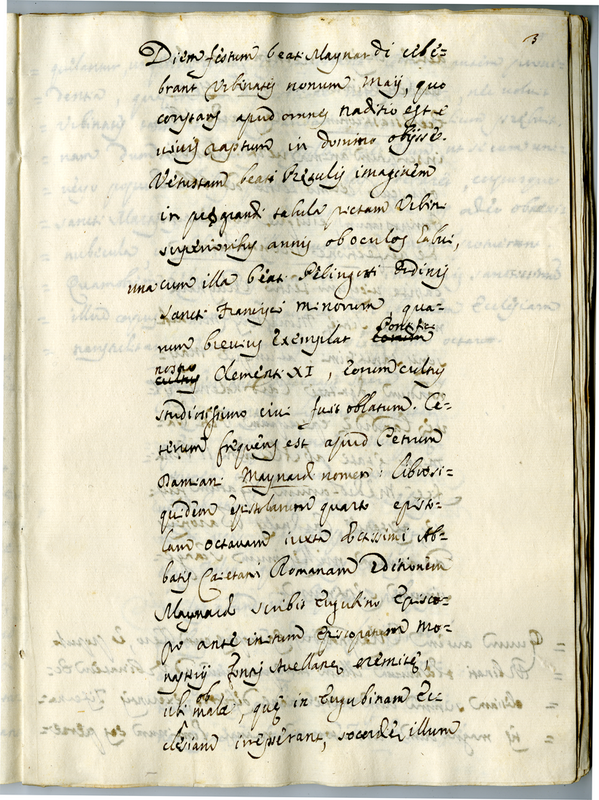 3
Diem festum beati Maynardi cele=
brant Urbinates nonum Maij, quo
constans apud omnes traditio est e
vivis raptum in domino obijsse.
Vetustam beati Presulis imaginem
in pergrandi tabula pictam Urbini
superioribus annis ob oculos habui,
una cum illa beati Pelingoti Ordinis
Sancti Francisci Minorum qua=
rum brevius exemplar Pontifici
nostro Clementi XI, eorum cultus
studiosissimo civi fuit oblatum. Ce=
terum frequens est apud Petrum
Damiani Maynardi nomen: libro si=
quidem epistolarum quarto episto=
lam octavam iuxta doctissimi Ab=
batis Caietani Romanam Editionem
Maynardo scribit Eugubino Episco=
po ante initum Episcopatum Mo=
nasterij Fontis Avellanę eremitę,
ubi ob mala, quę in Eugubinam Ec=
clesiam irrepserant, socordię illum